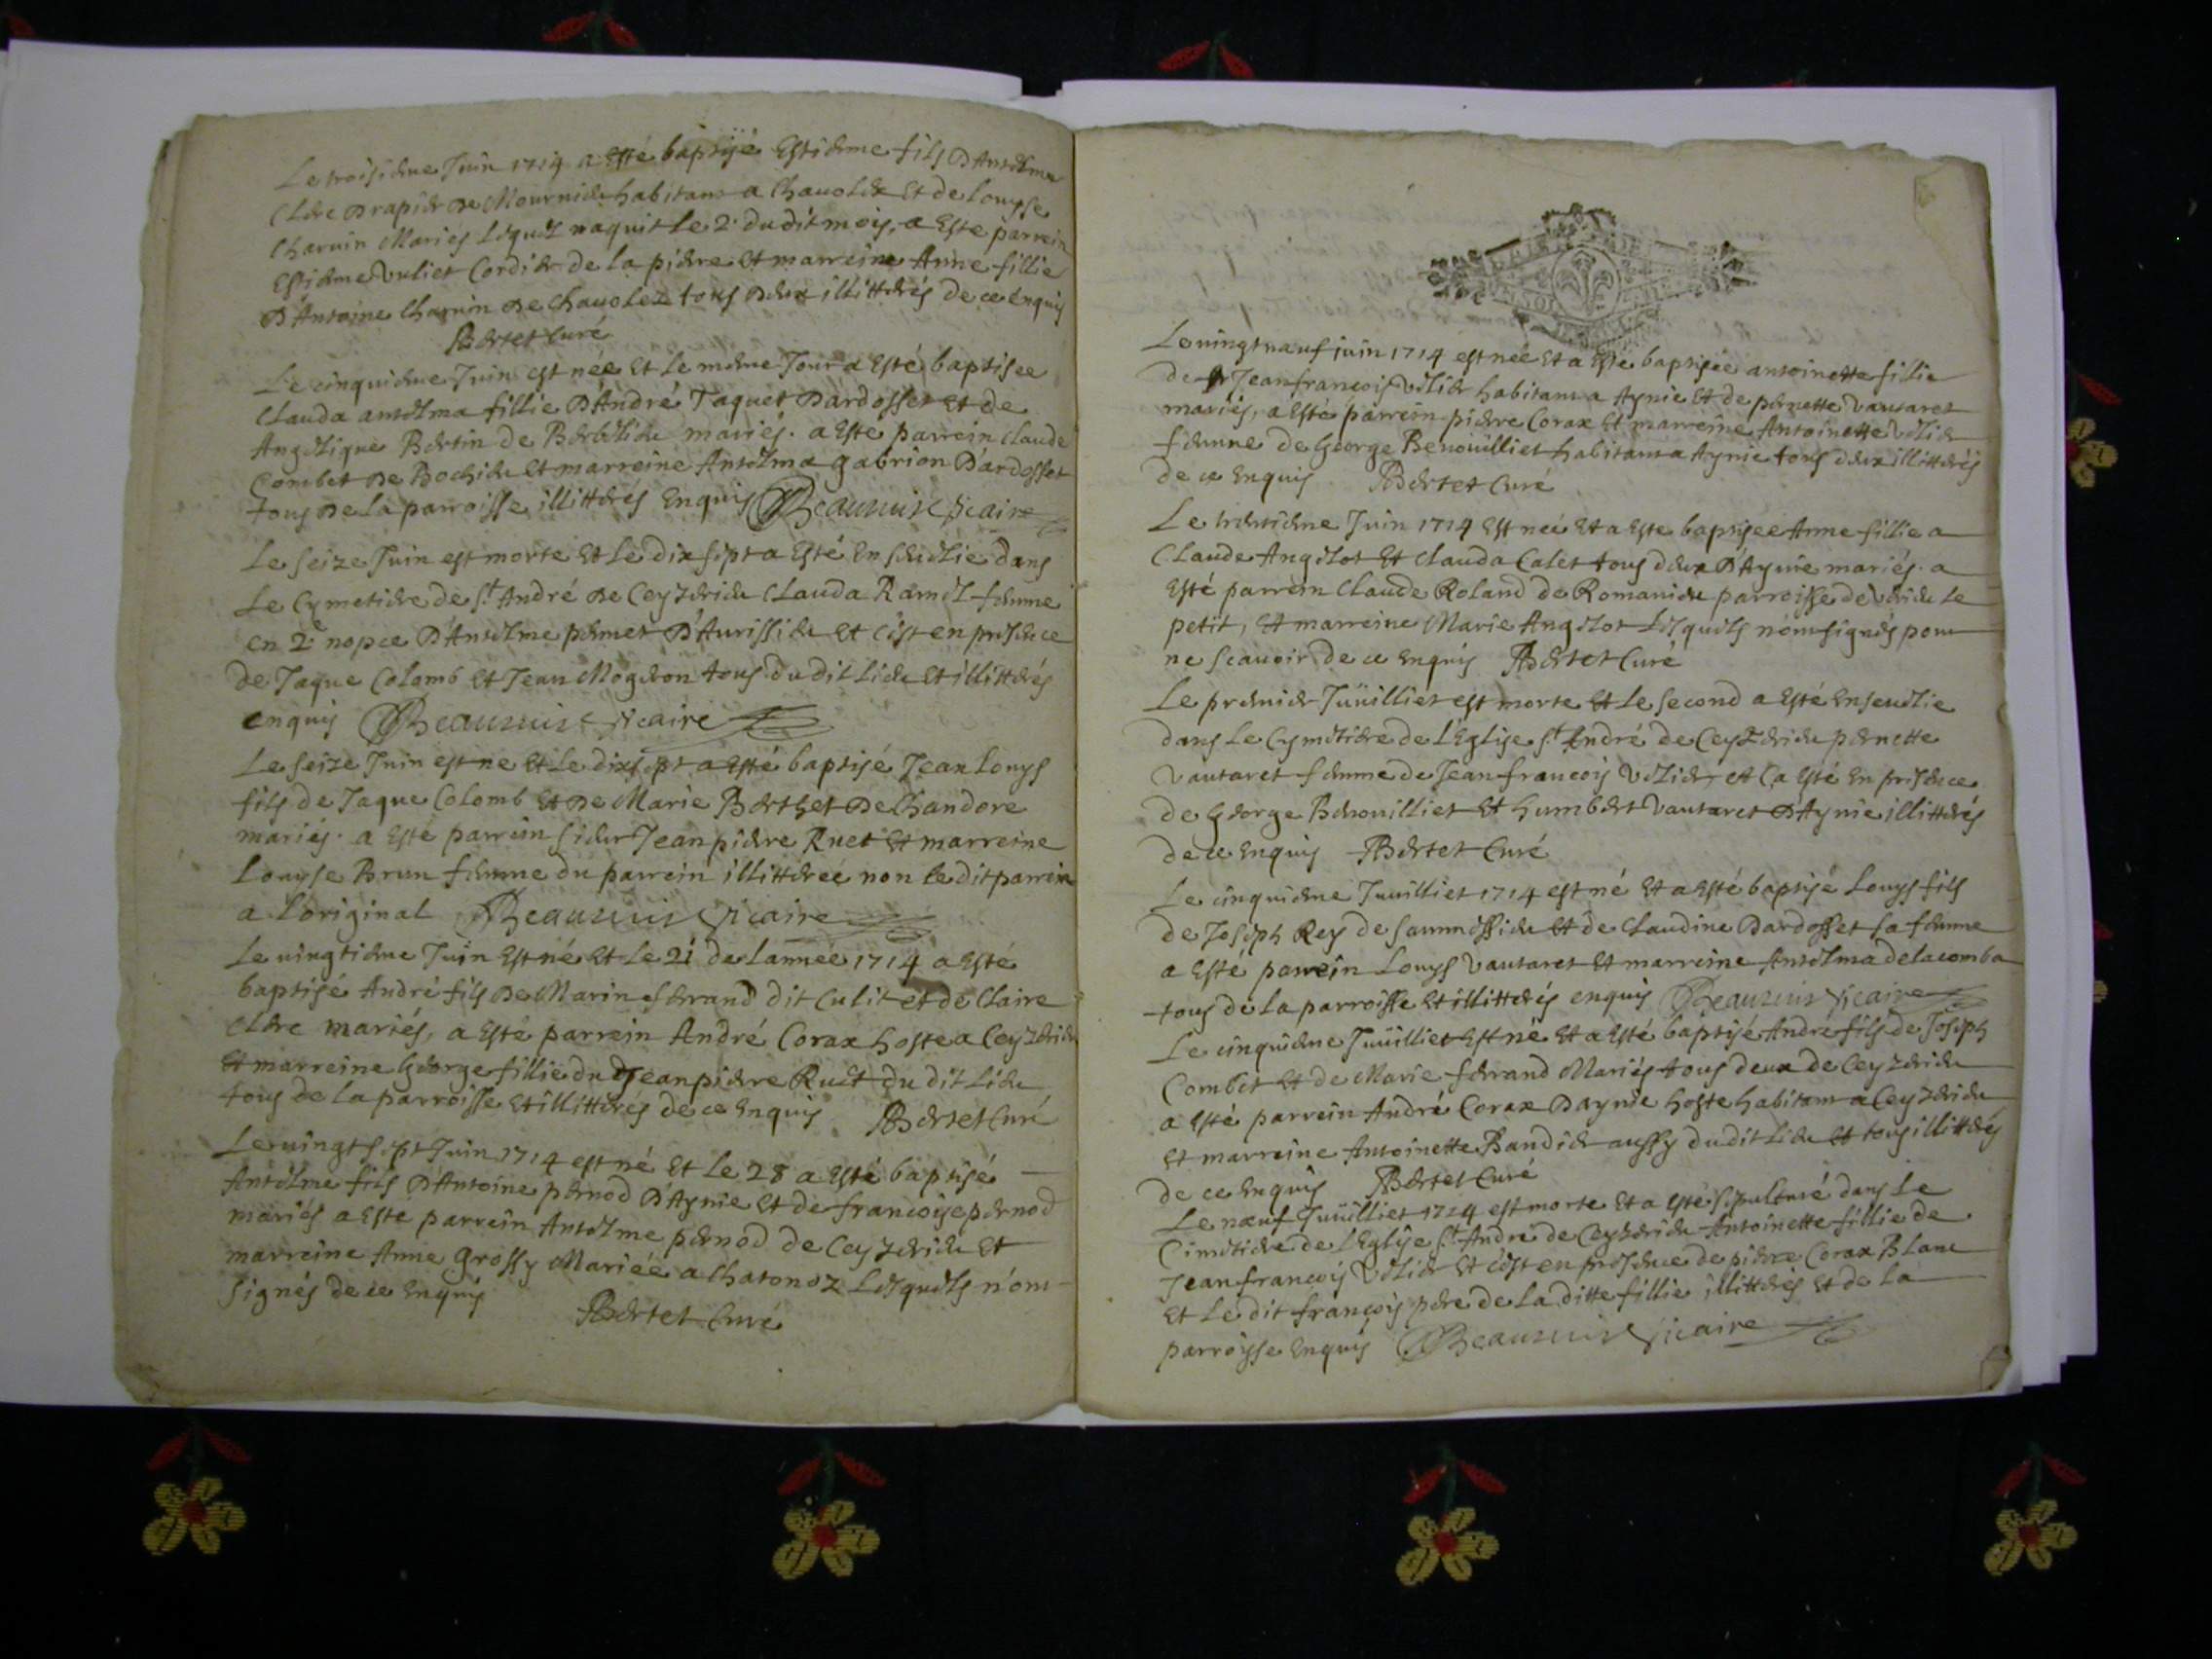 Le troisieme Juin 1714 a esté baptisé Estieme fils D'Antelme
Clere Drapier De Mournieu habitant a Chauolex Et de Louyse
Charuin Mariés Lequel naquit le 2. du dit mois, a Este parrein
Estieme Vuliet Cordier de la piere Et marreine Anne fillie
D'Antoine Charuin De Chauolez tous deux illitterés de ce énquis
Bertet Curé
Le cinquieme Juin est née Et Le meme Jour a Esté baptisee
Clauda antelma fillie D'André Taquet D'ardosset Et de
Angelique Bertin de Berbelieu mariés. a Este parrein Claude
Combet De Bochieu Et marreine Antelma gabrion D'ardosset
tous De La parroisse illitterés Enquis Beauuuis Vicaire
Le seize Juin est morte Et Le dix sept a Esté Enseuelie dans
Le Cymetiere de St André De Ceyzerieu Clauda Ramel femme
en 2e nopce D'Antelme permet D'Aurissieu Et C'est en presence
de Jaque Colomb Et Jean Mogeon tous du dit Lieu Et illitterés
enquis Beauuuis Vicaire
Le seize Juin est ne Et Le dix sept a Esté baptisé Jean Louys
fils de Jaque Colomb Et De Marie Berthet De Chandore
mariés. a Esté parrein sieur Jean piere Ruet Et marreine
Louyse Brun femme du parrein illitterée non le dit parrein
a L'original Beauuuis Vicaire
Le uingtieme Juin Est né Et Le 21 de Lannée 1714 a Esté
baptisé André fils De Marin ferrand dit Culit et de Claire
Clere mariés, a Esté parrein André Corax hoste a Ceyzerieu
Et marreine George fillie du Jean piere Ruet du dit Lieu
tous de La parroisse Et illitterés de ce Enquis Bertet Curé
Le uingt sept Juin 1714 est né Et Le 28 a Esté baptisé
Antelme fils D'Antoine pernod D'Aynie Et de francoise pernod
mariés a Este parrein Antelme pernod de Ceyzerieu Et
marreine Anne Grossy Mariée a Chatonoz Lesquels n'ont
signés de ce Enquis
Bertet Curé
Le uingt nœuf juin 1714 est neé Et a Este baptisée antoinette fillie
de Jean francois Velier habitant a Aynie Et de pernette Vautaret
mariés, a Esté parrein piere Corax Et marreine Antoinette Velier
femme de George Benoüilliet habitant a Aynie tous deux illitterés
de ce Enquis Bertet Curé
Le trentieme Juin 1714 Est neé Et a Este baptisee Anne fillie a
Claude Angelot Et Clauda Calet tous deux D'Aynie mariés. a
Esté parrein Claude Roland de Romanieu parroisse de Virieu Le
petit, Et marreine Marie Angelot Lesquels n'ont signés pour
ne scauoir de ce Enquis Bertet Curé
Le premier Juüilliet est morte Et Le second a Esté Enseuelie
dans Le Cymetiere de L'Eglise St André de Ceyzerieu pernette
Vautaret femme de Jean francois Velier, et Ca Esté En presence
de George Benouilliet Et humbert Vautaret D'Aynie illitterés
de ce Enquis Bertet Curé
Le cinquieme Juuilliet 1714 est né Et a Esté baptisé Louys fils
de Joseph Rey de Saumessieu Et de Claudine Dardosset sa femme
a Esté parrein Louys Vautaret Et marreine Antelma delacomba
tous de la parroisse Et illitterés enquis Beauuuis Vicaire
Le cinquieme Juüilliet Est né Et a Esté baptisé Andre fils de Joseph
Combet Et de Marie ferrand Mariés tous deux de Ceyzerieu
a Esté parrein André Corax Daynie hoste habitant a Ceyzerieu
Et marreine Antoinette Bandier aussy du dit Lieu Et tous illitterés
de ce Enquis Bertet Curé
Le nœuf Juüilliet 1714 est morte Et a Esté sepulturé dans Le
Cimetiere de L'Eglise St André de Ceyzerieu Antoinette fillie de
Jean francois Velier Et C'est en presence de piere Corax Blanc
Et Le dit françois pere de La ditte fillie illitterés Et de La
parroysse Enquis Beauuuis Vicaire